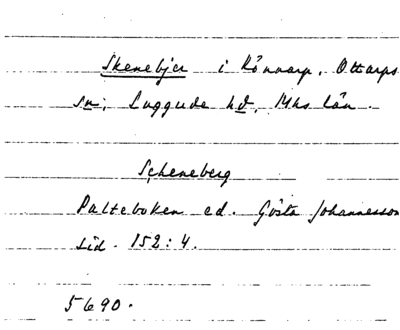 Skenebjer i Rönnarp, Ottarps
sn, Luggude hd, Mhs län.
Scheneberg
Palteboken ed. Gösta Johannesson
sid. 152:4.
5690.